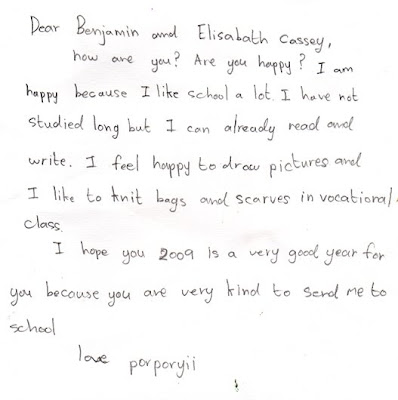 Dear Benjamin and Elisabath Cassey,
how are you? Are you happy? I am
happy because I like school a lot. I have not
studied long but I can already read and
write. I feel happy to draw pictures and
I like to knit bags and scarves in vocational
class.
I hope you 2009 is a very good year for
you because you are very kind to send me to
school
love porporyii